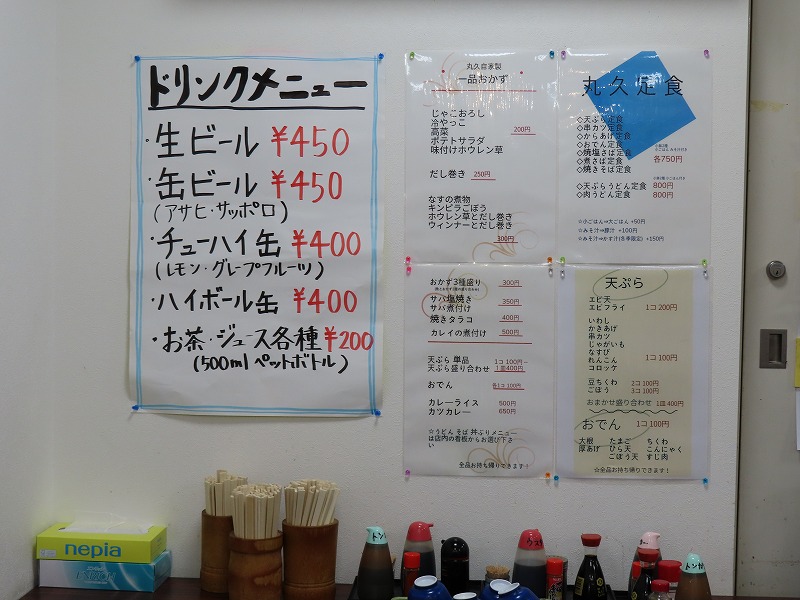 ドリンクメニュー
・生ビール ¥450
・缶ビール ¥450
(アサヒ・サッポロ)
・チューハイ缶 ¥400
(レモン・グレープフルーツ)
・ハイボール缶 ¥400
・お茶・ジュース各種 ¥200
(500mlペットボトル)
丸久自家製
一品おかず
じゃこおろし
冷やっこ
高菜 200円
ポテトサラダ
味付けホウレン草
だし巻き 250円
なすの煮物
キンピラごぼう
ホウレン草とだし巻き
ウィンナーとだし巻き
300円
丸久定食
◇天ぷら定食
◇串カツ定食
◇からあげ定食
◇おでん定食
◇焼塩さば定食 各750円
◇煮さば定食
◇焼きそば定食
◇天ぷらうどん定食 800円
◇肉うどん定食 800円
☆小ごはん⇒大ごはん +50円
☆みそ汁⇒豚汁 +100円
☆みそ汁⇒かす汁(冬季限定) +150円
おかず3種盛り 300円
サバ塩焼き 350円
サバ煮付け
焼きタラコ 400円
カレイの煮付け 500円
天ぷら 単品 1コ 100円~
天ぷら盛り合わせ 1皿400円
おでん 各1コ 100円
カレーライス 500円
カツカレー 650円
☆うどん そば 丼ぶりメニュー
は店内の看板からお選び下さ
い
全品お持ち帰りできます!
天ぷら
エビ天
エビフライ 1コ 200円
いわし
かきあげ
串カツ
じゃがいも
なすび 1コ 100円
れんこん
コロッケ
豆ちくわ 2コ 100円
ごぼう 3コ 100円
おまかせ盛り合わせ 1皿 400円
おでん 1コ 100円
大根 たまご ちくわ
厚あげ ひら天 こんにゃく
ごぼう天 すじ肉
☆全品お持ち帰りできます!
nepia